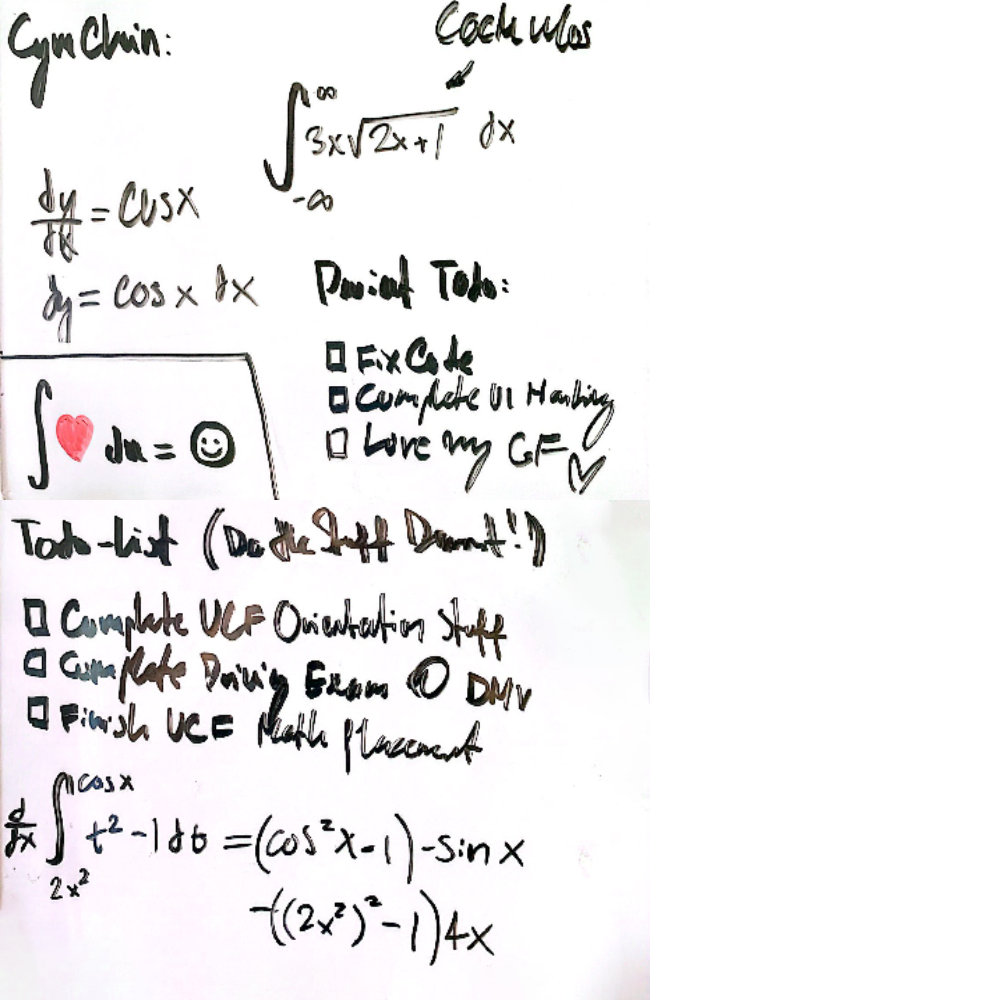 GymChain:
∫_{-∞}^{∞} 3x√(2x+1) dx
dy/dx = cosx
dy = cos x dx
Todo:
☐ Fix Code
☐ Complete UI
☐ Love my GF ♡
∫ ♥ du = ☺
Todo-List (Do the Stuff Dammit!)
☐ Complete UCF Orientation Stuff
☐ Complete Driving Exam @ DMV
☐ Finish UCF Math Placement
d/dx ∫_{2x²}^{cosx} t² - 1 dt = (cos²x - 1) -sin x
-((2x²)² - 1) 4x